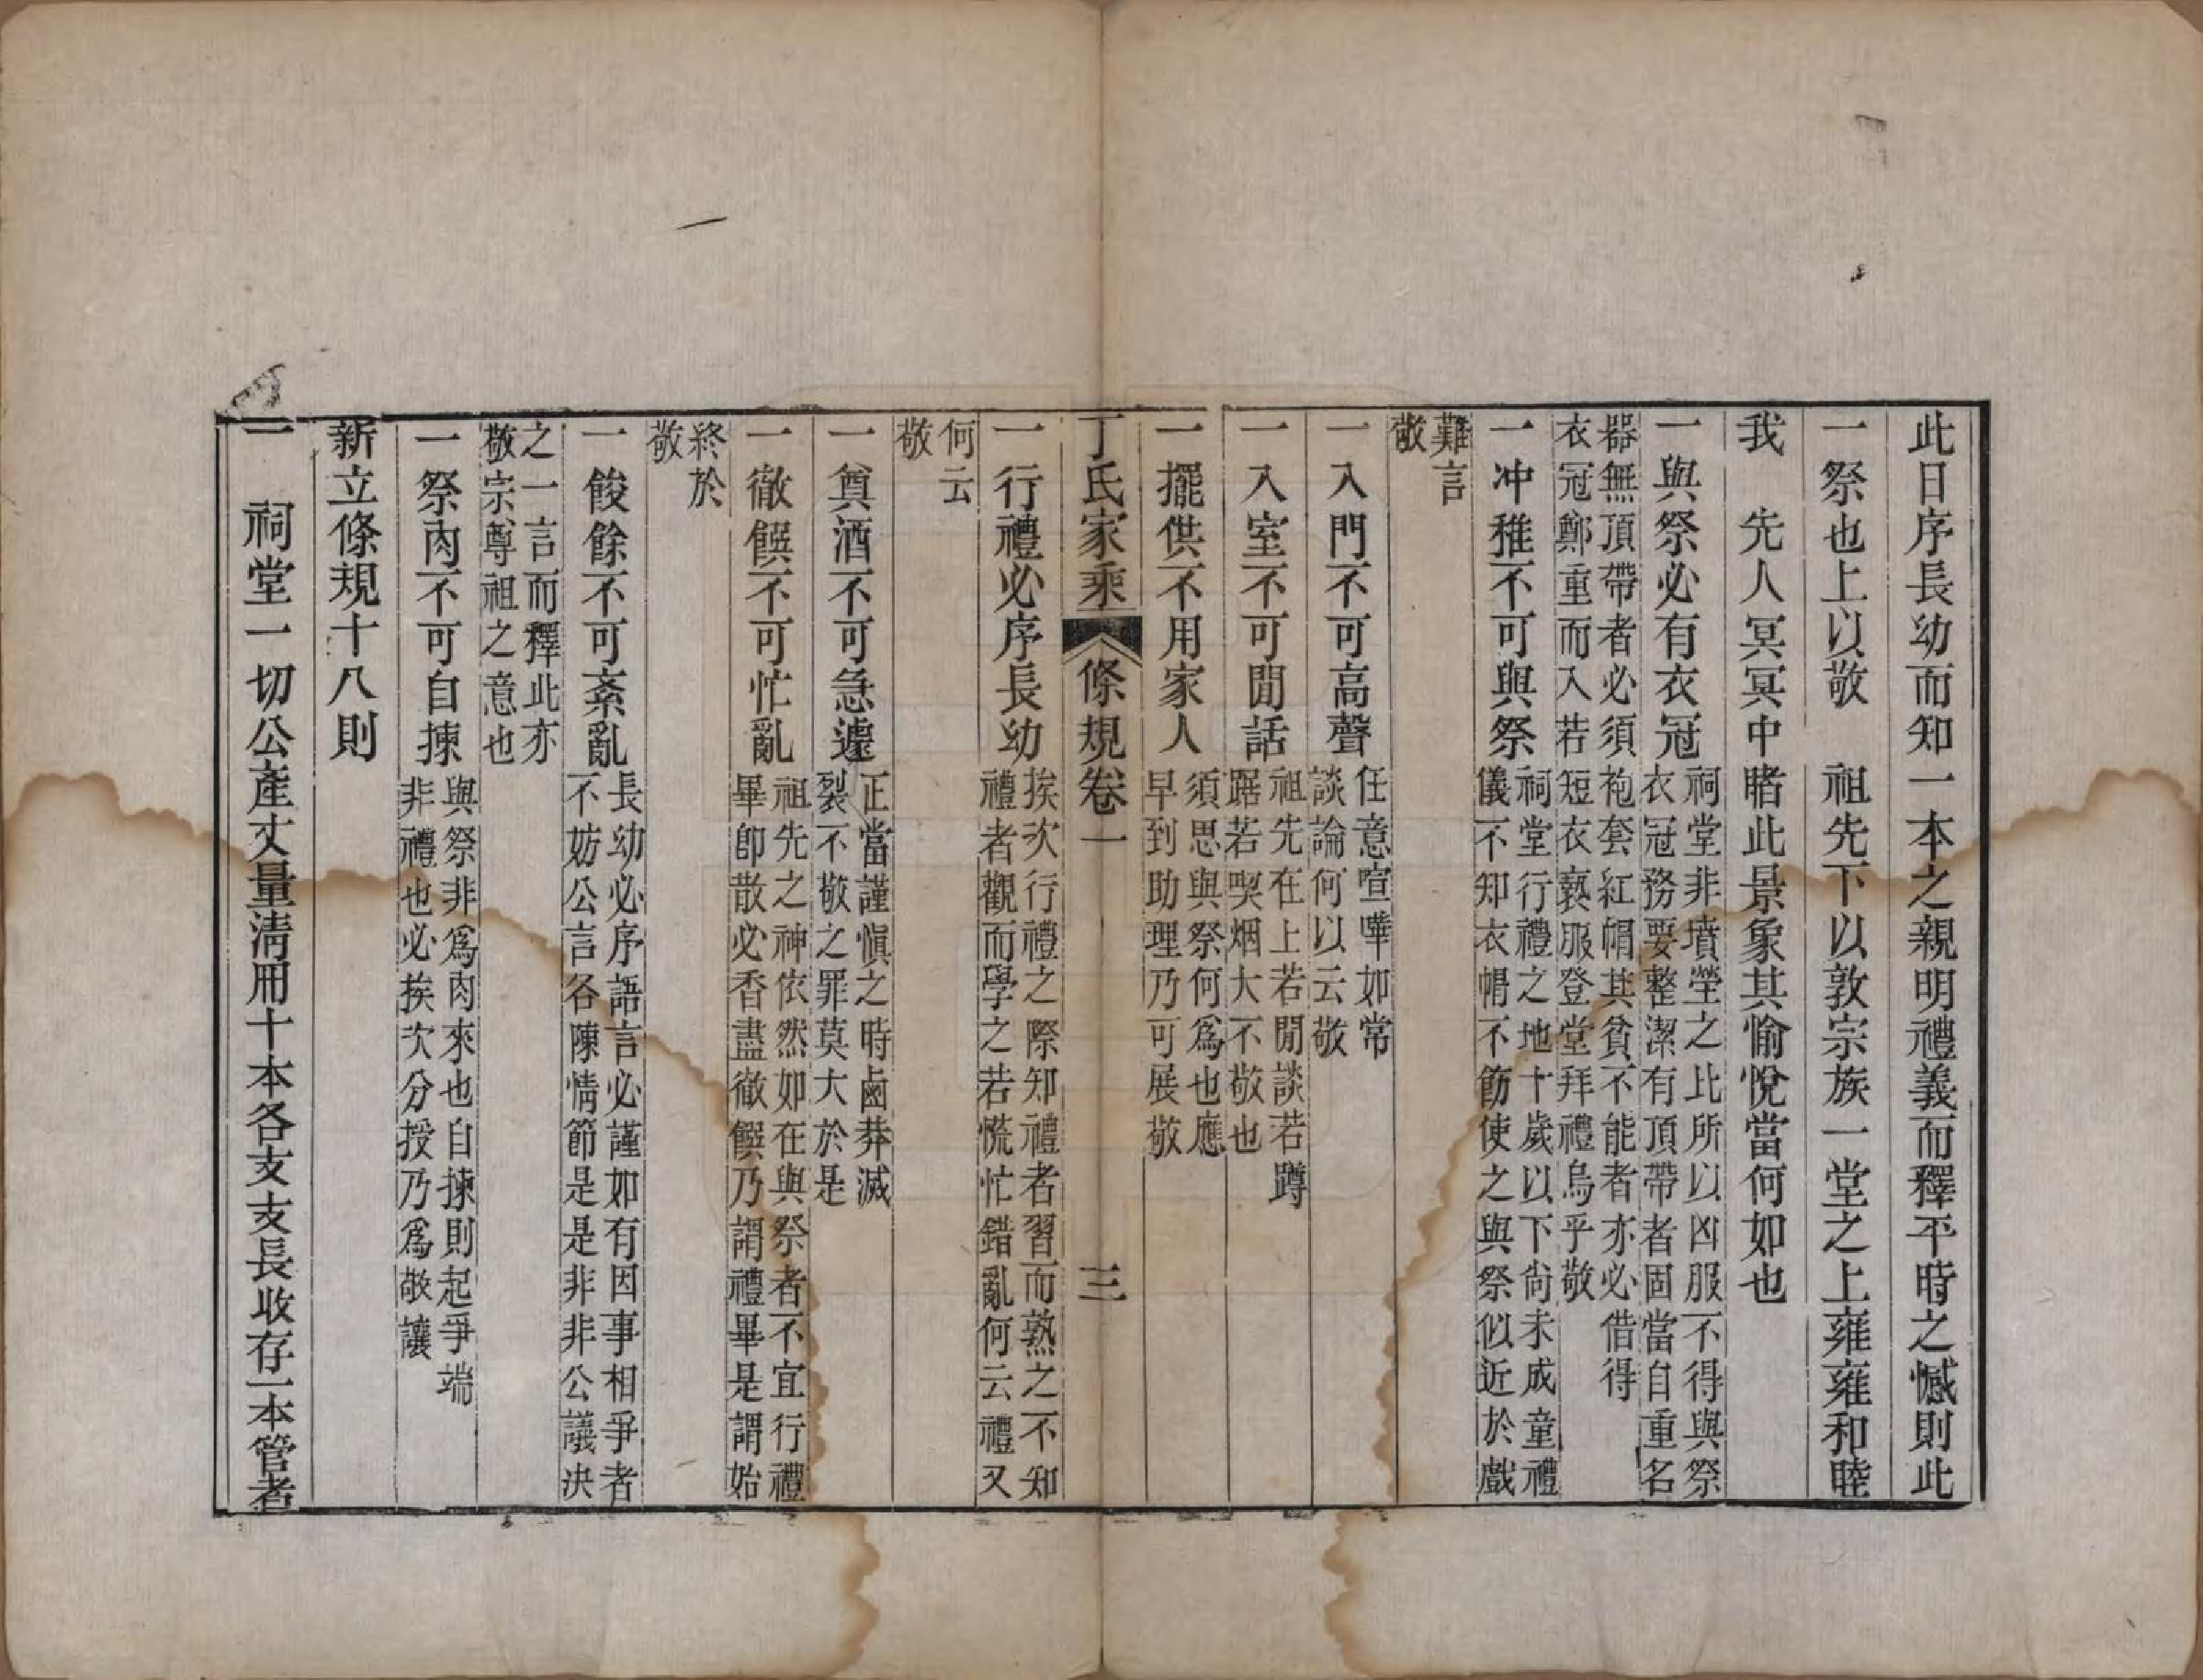 此日序長幼而知一本之親明禮義而釋平時之憾則此
一祭也上以敬　祖先下以敦宗族一堂之上雍雍和睦
我　先人冥冥中睹此景象其愉悅當何如也
一與祭必有衣冠祠堂非墳塋之比所以凶服不得與祭
衣冠務要整潔有頂帶者固當自重名
器無頂帶者必須袍套紅帽其貧不能者亦必借得
衣冠鄭重而入若短衣褻服登堂拜禮烏乎敬
一冲稚不可與祭祠堂行禮之地十歲以下尙未成童禮
儀不知衣帽不飭使之與祭似近於戲
難言
敬
一入門不可高聲任意喧嘩如常
談論何以云敬
一入室不可閒話祖先在上若閒談若蹲
踞若喫烟大不敬也
一擺供不用家人須思與祭何爲也應
早到助理乃可展敬
丁氏家乘　條規卷一　三
一行禮必序長幼挨次行禮之際知禮者習而熟之不知
禮者觀而學之若慌忙錯亂何云禮又
何云
敬
一奠酒不可急遽正當謹愼之時鹵莽滅
裂不敬之罪莫大於是
一徹饌不可忙亂祖先之神依然如在與祭者不宜行禮
畢卽散必香盡徹饌乃謂禮畢是謂始
終於
敬
一餕餘不可紊亂長幼必序語言必謹如有因事相爭者
不妨公言各陳情節是是非非公議决
之一言而釋此亦
敬宗尊祖之意也
一祭肉不可自揀與祭非爲肉來也自揀則起爭端
非禮也必挨次分授乃爲敬讓
新立條規十八則
一　祠堂一切公產丈量淸册十本各支支長收存一本管者